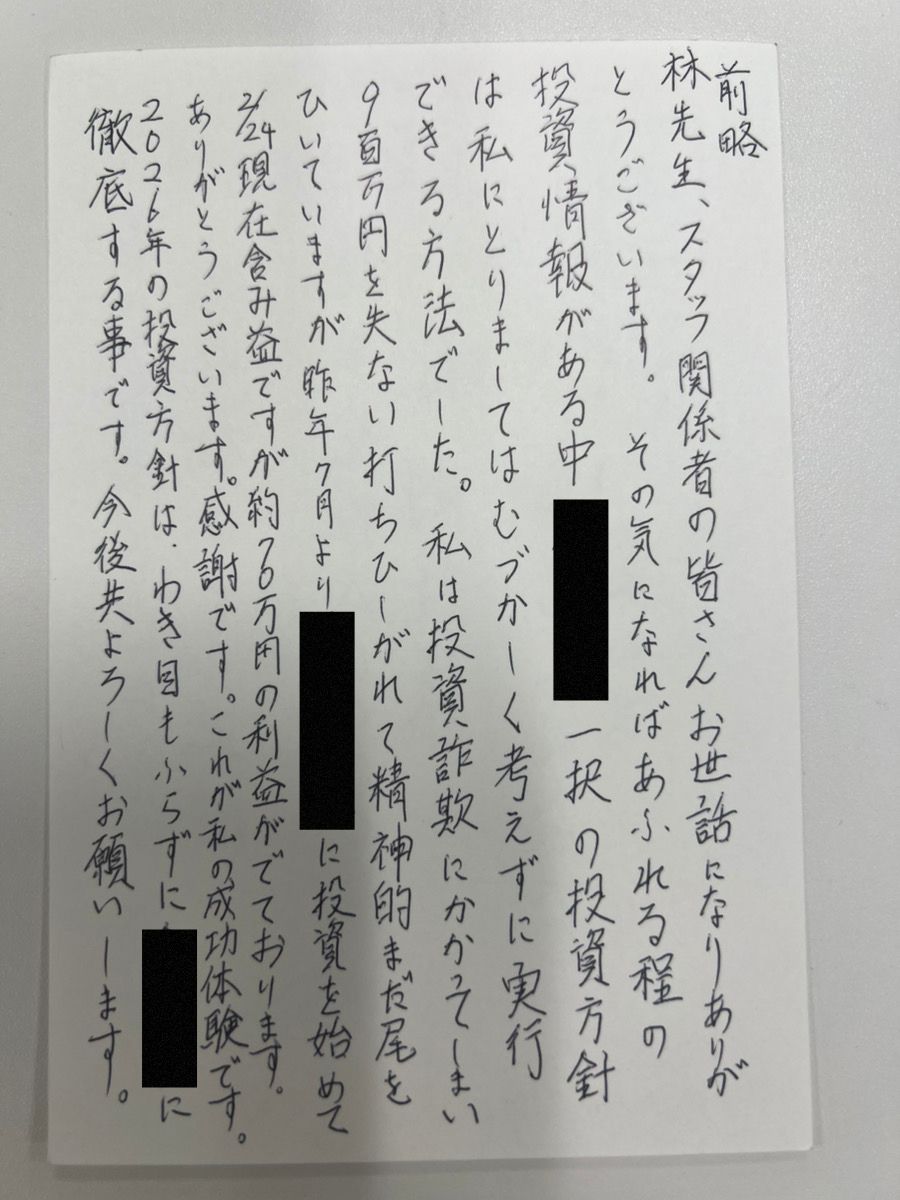 前略
林先生、スタッフ関係者の皆さんお世話になりありが
とうございます。その気になればあふれる程の
投資情報がある中 一択の投資方針
は私にとりましてはむづかしく考えずに実行
できる方法でした。私は投資詐欺にかかってしまい
9百万円を失ない打ちひしがれて精神的まだ尾を
ひいていますが昨年7月より に投資を始めて
2/24現在含み益ですが約76万円の利益がでております。
ありがとうございます。感謝です。これが私の成功体験です。
2026年の投資方針は、わき目もふらずに に
徹底する事です。今後共よろしくお願いします。